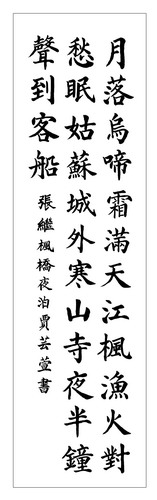 月落烏啼霜滿天江楓漁火對
愁眠姑蘇城外寒山寺夜半鐘
聲到客船
張繼楓橋夜泊賈芸萱書